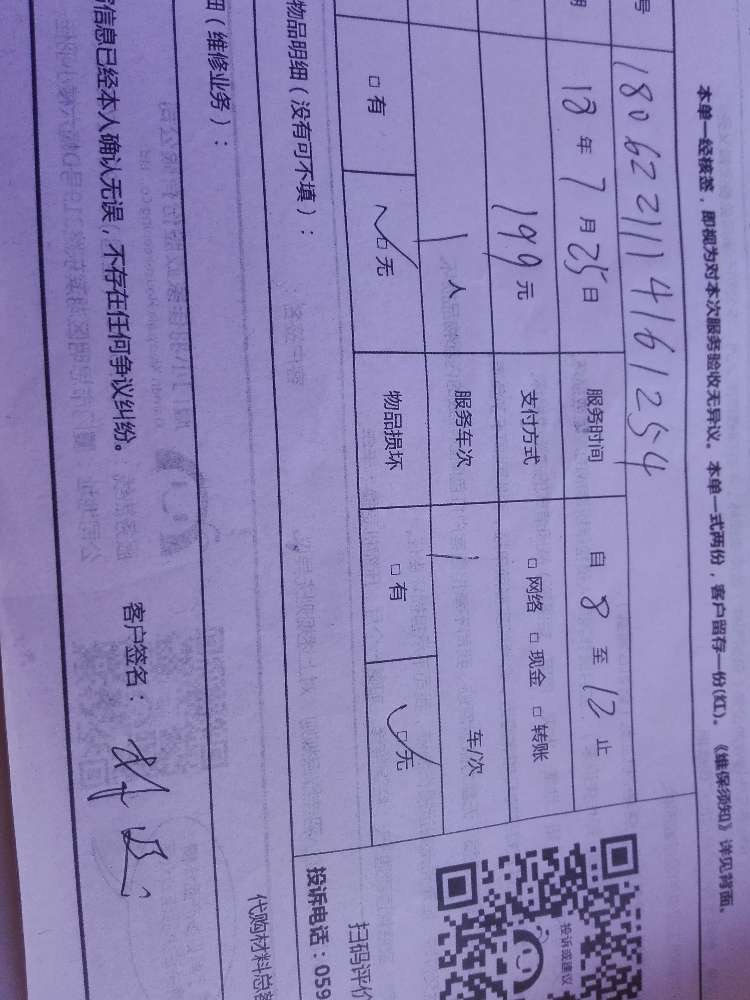 本单一经核签，即视为对本次服务验收无异议。本单一式两份，客户留存一份(红)。《维保须知》详见背面。
号 180622111416 1254
期 18年7月25日 服务时间 自8至12止
199元 支付方式 □网络 □现金 □转账
1人 服务车次 1 车/次
□有 □无 物品损坏 □有 □无
投诉或建议
扫码评价
物品明细（没有可不填）：
投诉电话：059
细（维修业务）：
代购材料总
信息已经本人确认无误，不存在任何争议纠纷。 客户签名：